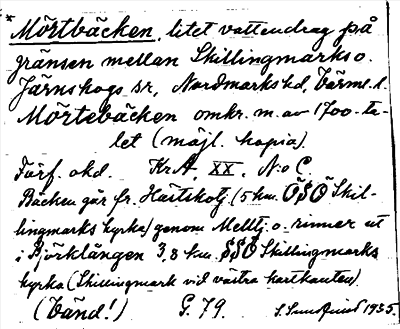 * Mörtbäcken, litet vattendrag på
gränsen mellan Skillingmarks o.
Järnskogs sr, Nordmarks hd, Värml. l.
Mörtebäcken omkr. m. av 1700-ta-
let (möjl. kopia).
Förf. okd. Kr. A. XX, N:o C.
Bäcken går fr. Hältskotj. (5 km. ÖSÖ Skil-
lingmarks kyrka) genom Melltj. o. rinner ut
i Björklången 3,8 km. SSÖ Skillingmarks
kyrka (Skillingmark vid västra kartkanten)
(Vänd!) G. 79. 1935.